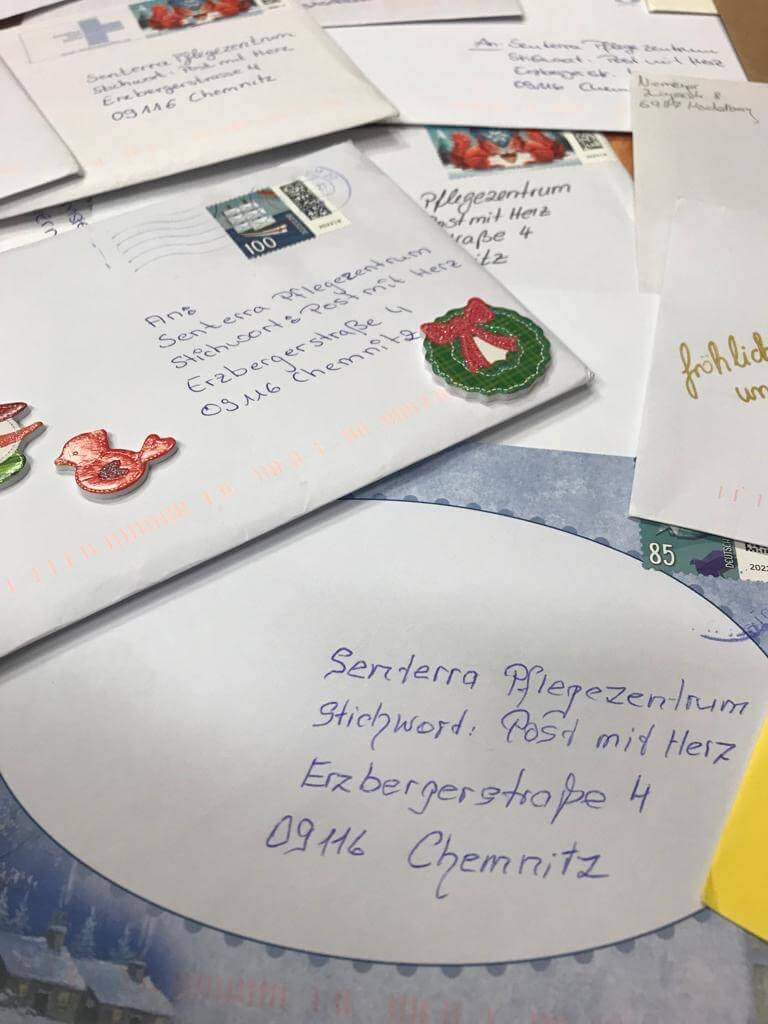 Senterra Pflegezentrum
Stichwort: Post mit Herz
Erzbergerstrasse 4
09116 Chemnitz
An: Senterra Pflegezentrum
Stichwort: Post mit Herz
09116
Pflegezentrum
Post mit Herz
4
100
An:
Senterra Pflegezentrum
Stichwort: Post mit Herz
Erzbergerstraße 4
09116 Chemnitz
fröhlich
un
85
Senterra Pflegezentrum
Stichwort: Post mit Herz
Erzbergerstraße 4
09116 Chemnitz